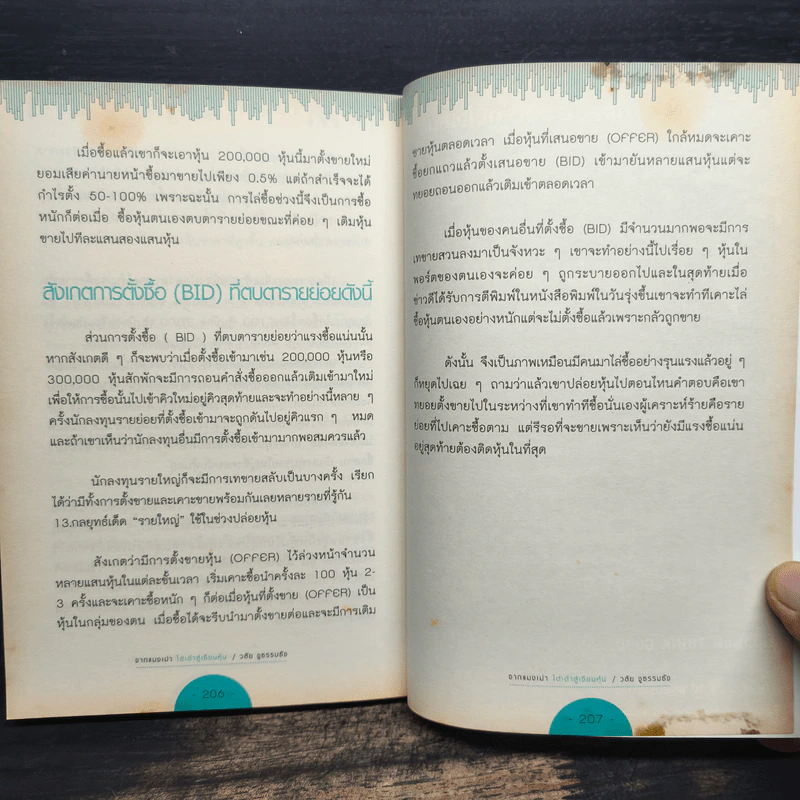 เมื่อซื้อแล้วเขาก็จะเอาหุ้น 200,000 หุ้นนี้มาตั้งขายใหม่
ยอมเสียค่านายหน้าซื้อมาขายไปเพียง 0.5% แต่ถ้าสำเร็จจะได้
กำไรตั้ง 50-100% เพราะฉะนั้น การไล่ซื้อช่วงนี้จึงเป็นการซื้อ
หนักก็ต่อเมื่อ ซื้อหุ้นตนเองตบตารายย่อยขณะที่ค่อย ๆ เติมหุ้น
ขายไปทีละแสนสองแสนหุ้น
สังเกตการตั้งซื้อ (BID) ที่ตบตารายย่อยดังนี้
ส่วนการตั้งซื้อ ( BID ) ที่ตบตารายย่อยว่าแรงซื้อแน่นนั้น
หากสังเกตดี ๆ ก็จะพบว่าเมื่อตั้งซื้อเข้ามาเช่น 200,000 หุ้นหรือ
300,000 หุ้นสักพักจะมีการถอนคำสั่งซื้อออกแล้วเติมเข้ามาใหม่
เพื่อให้การซื้อนั้นไปเข้าคิวใหม่อยู่คิวสุดท้ายและจะทำอย่างนี้หลาย ๆ
ครั้งนักลงทุนรายย่อยที่ตั้งซื้อเข้ามาจะถูกดันไปอยู่คิวแรก ๆ หมด
และถ้าเขาเห็นว่านักลงทุนอื่นมีการตั้งซื้อเข้ามามากพอสมควรแล้ว
นักลงทุนรายใหญ่ก็จะมีการเทขายสลับเป็นบางครั้ง เรียก
ได้ว่ามีทั้งการตั้งขายและเคาะขายพร้อมกันเลยหลายรายที่รู้กัน
13.กลยุทธ์เด็ด “รายใหญ่” ใช้ในช่วงปล่อยหุ้น
สังเกตว่ามีการตั้งขายหุ้น (OFFER) ไว้ล่วงหน้าจำนวน
หลายแสนหุ้นในแต่ละชั้นเวลา เริ่มเคาะซื้อนำครั้งละ 100 หุ้น 2-
3 ครั้งและจะเคาะซื้อหนัก ๆ ก็ต่อเมื่อหุ้นที่ตั้งขาย (OFFER) เป็น
หุ้นในกลุ่มของตน เมื่อซื้อได้จะรีบนำมาตั้งขายต่อและจะมีการเติม
จากแมงเม่า ไต่เต้าสู่เซียนหุ้น / วสัย จูธรรมธัจ
- 206 -
ขายหุ้นตลอดเวลา เมื่อหุ้นที่เสนอขาย (OFFER) ใกล้หมดจะเคาะ
ซื้อยกแถวแล้วตั้งเสนอขาย (BID) เข้ามายันหลายแสนหุ้นแต่จะ
ทยอยถอนออกแล้วเติมเข้าตลอดเวลา
เมื่อหุ้นของคนอื่นที่ตั้งซื้อ (BID) มีจำนวนมากพอจะมีการ
เทขายสวนลงมาเป็นจังหวะ ๆ เขาจะทำอย่างนี้ไปเรื่อย ๆ หุ้นใน
พอร์ตของตนเองจะค่อย ๆ ถูกระบายออกไปและในสุดท้ายเมื่อ
ข่าวดีได้รับการตีพิมพ์ในหนังสือพิมพ์ในวันรุ่งขึ้นเขาจะทำทีเคาะไล่
ซื้อหุ้นตนเองอย่างหนักแต่จะไม่ตั้งซื้อแล้วเพราะกลัวถูกขาย
ดังนั้น จึงเป็นภาพเหมือนมีคนมาไล่ซื้ออย่างรุนแรงแล้วอยู่ ๆ
ก็หยุดไปเฉย ๆ ถามว่าแล้วเขาปล่อยหุ้นไปตอนไหนคำตอบคือเขา
ทยอยตั้งขายไปในระหว่างที่เขาทำทีซื้อนั่นเองผู้เคราะห์ร้ายคือราย
ย่อยที่ไปเคาะซื้อตาม แต่รีรอที่จะขายเพราะเห็นว่ายังมีแรงซื้อแน่น
อยู่สุดท้ายต้องติดหุ้นในที่สุด
จากแมงเม่า ไต่เต้าสู่เซียนหุ้น / วสัย จูธรรมธัจ
- 207 -